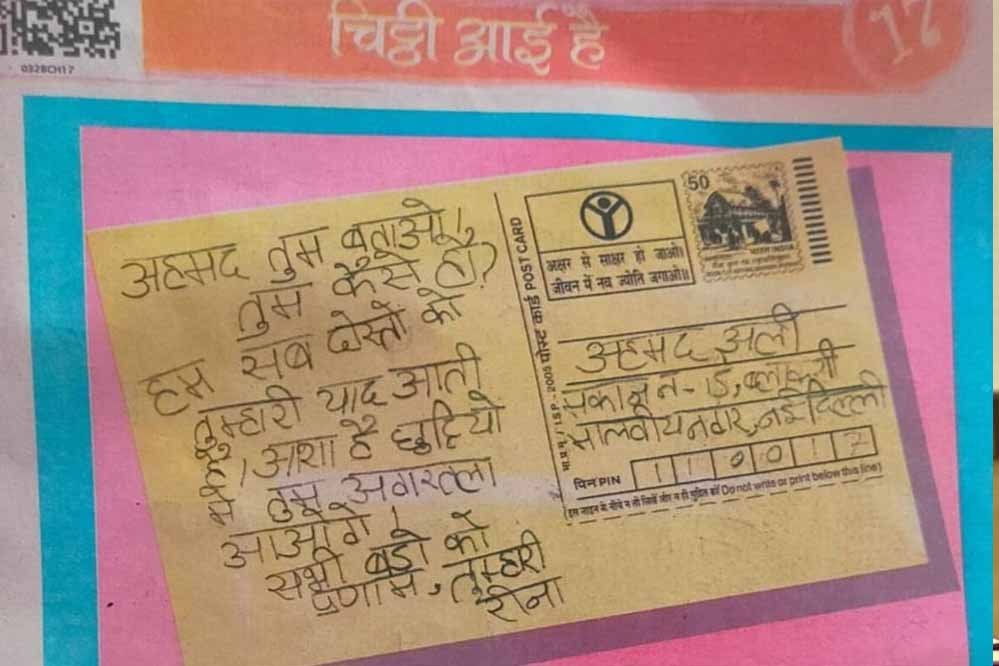 चिट्ठी आई है
17
0328CH17
अहमद तुम बताओ,
तुम कैसे हो?
हम सब दोस्तों को
तुम्हारी याद आती
है। आशा है छुट्टियों
में तुम अगरतला
आओगे।
सभी बड़ों को
प्रणाम, तुम्हारी
रीना
पोस्ट कार्ड POST CARD
2005
अक्षर से साक्षर हो जाओ।
जीवन में नव ज्योति जगाओ॥
50
भारत INDIA
अहमद अली
मकान न-15, ब्लाक सी
मालवीय नगर, नई दिल्ली
पिन PIN 110017
(इस लाइन के नीचे न तो लिखें और न ही मुद्रित करें Do not write or print below this line)